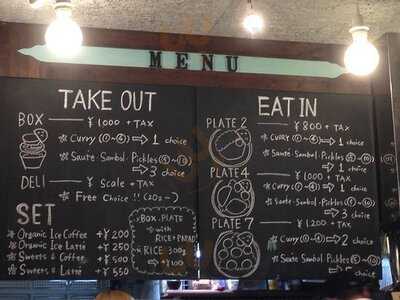 MENU
TAKE OUT
BOX — ¥1000 + TAX
Curry (①~④) → 1 choice
Sauté・Sambol・Pickles (⑤~⑩)
→ 3 choice
DELI — ¥ Scale + TAX
Free Choice!! (20g~)
SET
Organic Ice Coffee +¥200
Organic Ice Latté +¥250
Sweets & Coffee +¥500
Sweets & Latté +¥550
BOX. PLATE
with
RICE & PAPAD
RICE 300g
→ +¥100
EAT IN
PLATE 2 — ¥800 + TAX
CURRY (①~④) → 1 choice
Sauté・Sambol・Pickles
→ 1 choice
PLATE 4 — ¥1000 + TAX
Curry (①~④) → 1 choice
Sauté・Sambol・Pickles
→ 3 choice
PLATE 7 — ¥1200 + TAX
Curry (①~④) → 2 choice
Sauté Sambol Pickles